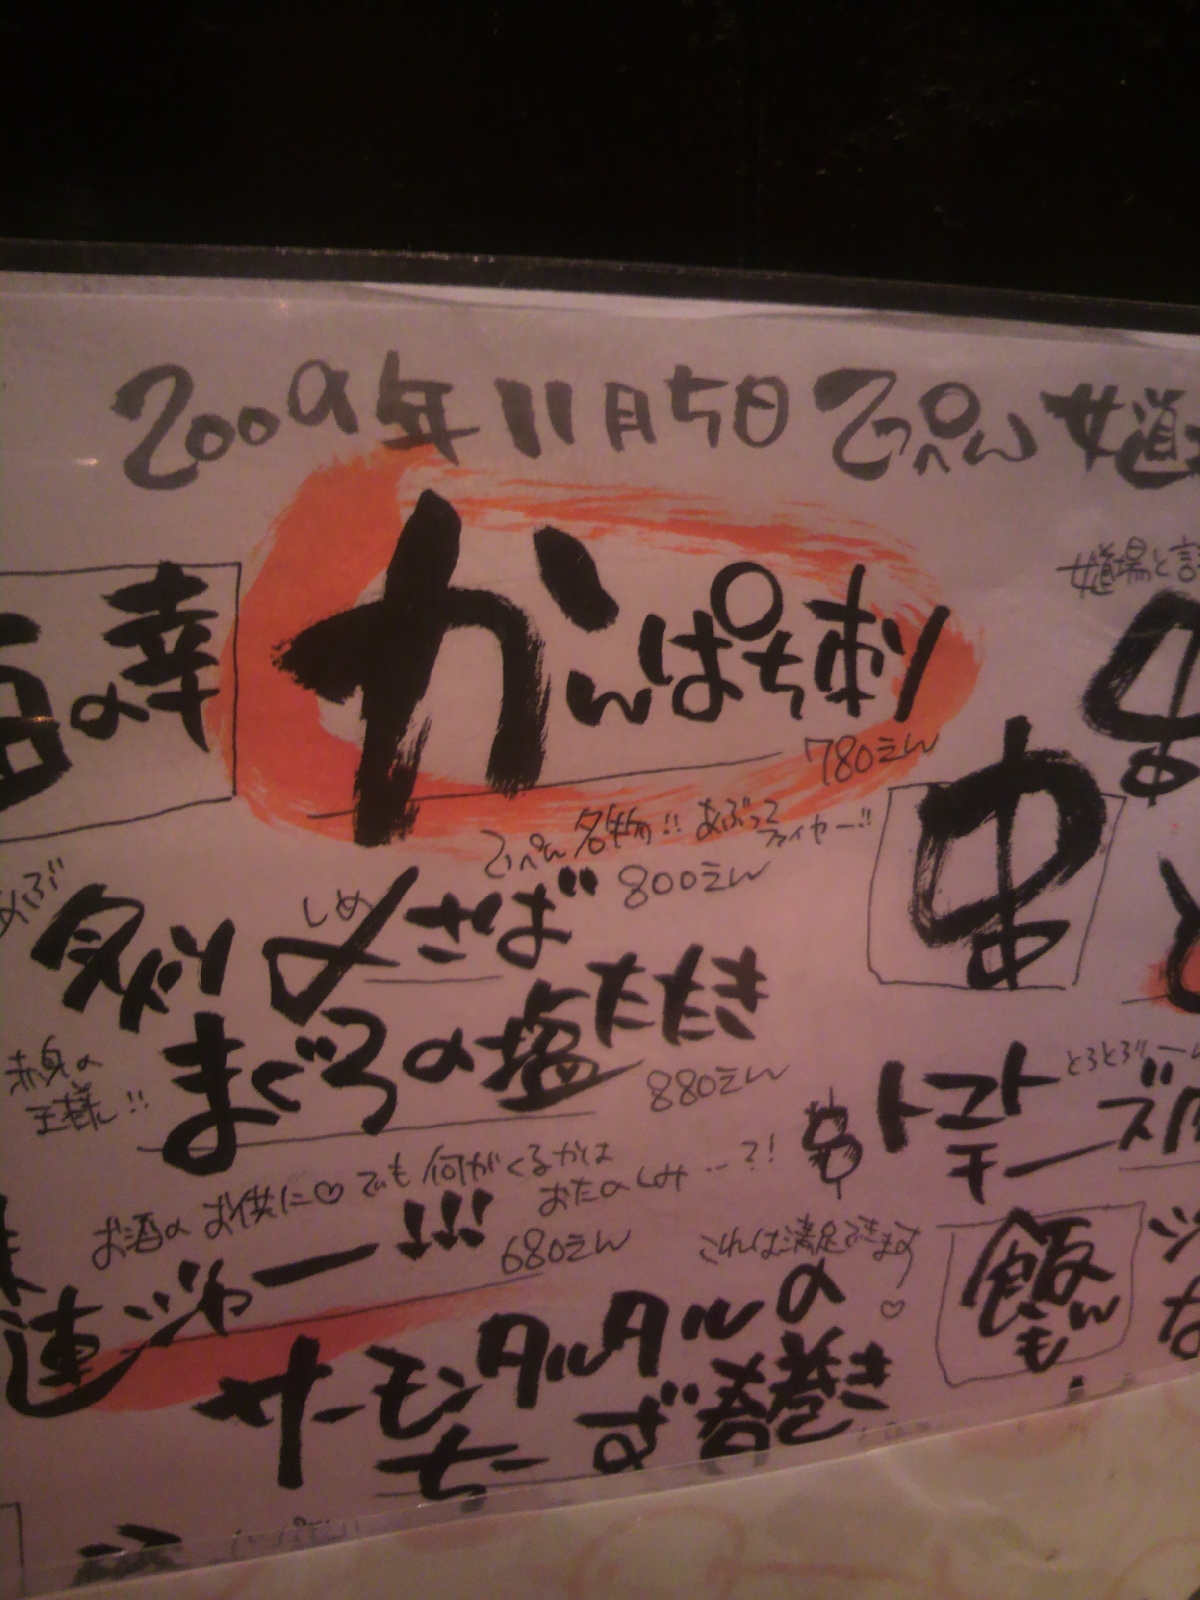 2009年11月5日 てっぺん 女道
の幸
かんぱち刺
780えん
女道場と
てっぺん名物!! あぶってファイヤー!!
800えん
あぶ
炙り 〆さば
しめ
串
まぐろの塩たたき
赤身の
王様!!
880えん
トマト
チーズ
お酒のお供に♡でも何がくるかは
おたのしみ…?!
連ジャー!!!
680えん
これは満足できます♡
サーモンタルタルの
チーず春巻き
飯
もん